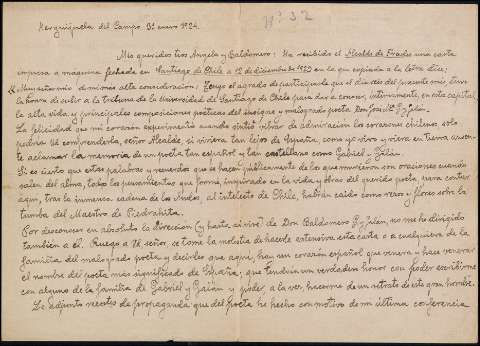 Nº 32
Herguijuela del Campo 3, enero 1924.
Mis queridos tíos Angela y Baldomero: He recibido el Alcalde de Frades una carta
impresa a máquina fechada en Santiago de Chile a 12 diciembre de 1923 en la que copiada a la letra dice:
Muy señor mío de mi más alta consideración: Tengo el agrado de participarle que el día seis del presente mes, tuve
la honra de subir a la tribuna de la Universidad de Santiago de Chile para dar a conocer, íntimamente, en esta capital,
la alta vida y principales composiciones poéticas del insigne y malogrado poeta Don José Mª G. y Galán.
La felicidad que mi corazón experimentó cuando sintió vibrar de admiración los corazones chilenos, solo
podría Ud comprenderla, señor Alcalde, si viviera tan lejos de España, como yo vivo y viera en tierra ausen-
te aclamar la memoria de un poeta tan español y tan castellano como Gabriel y Galán.
Si es cierto que estas palabras y recuerdos que se hacen públicamente de los que murieron son oraciones cuando
salen del alma, todos los pensamientos que formé, inspirado en la vida y obras del querido poeta, para contar
aquí, tras la inmensa cadena de los Andes, al intelecto de Chile, habrán caído como rezos y flores sobre la
tumba del Maestro de Piedrahita.
Por desconocer en absoluto la dirección (y hasta si vive) de Don Baldomero G. y Galán, no me he dirigido
también a él. Ruego a Ud señor se tome la molestia de hacerle extensiva esta carta o a cualquiera de la
familia del malogrado poeta y decirles que aquí, hay un corazón español que venera y hace venerar
el nombre del poeta más significado de España; que tendría un verdadero honor con poder escribirme
con alguno de la familia de Gabriel y Galán y poder, a la vez, hacerme de un retrato de este gran hombre.
Le adjunto recortes de propaganda que del poeta he hecho con motivo de mi última conferencia